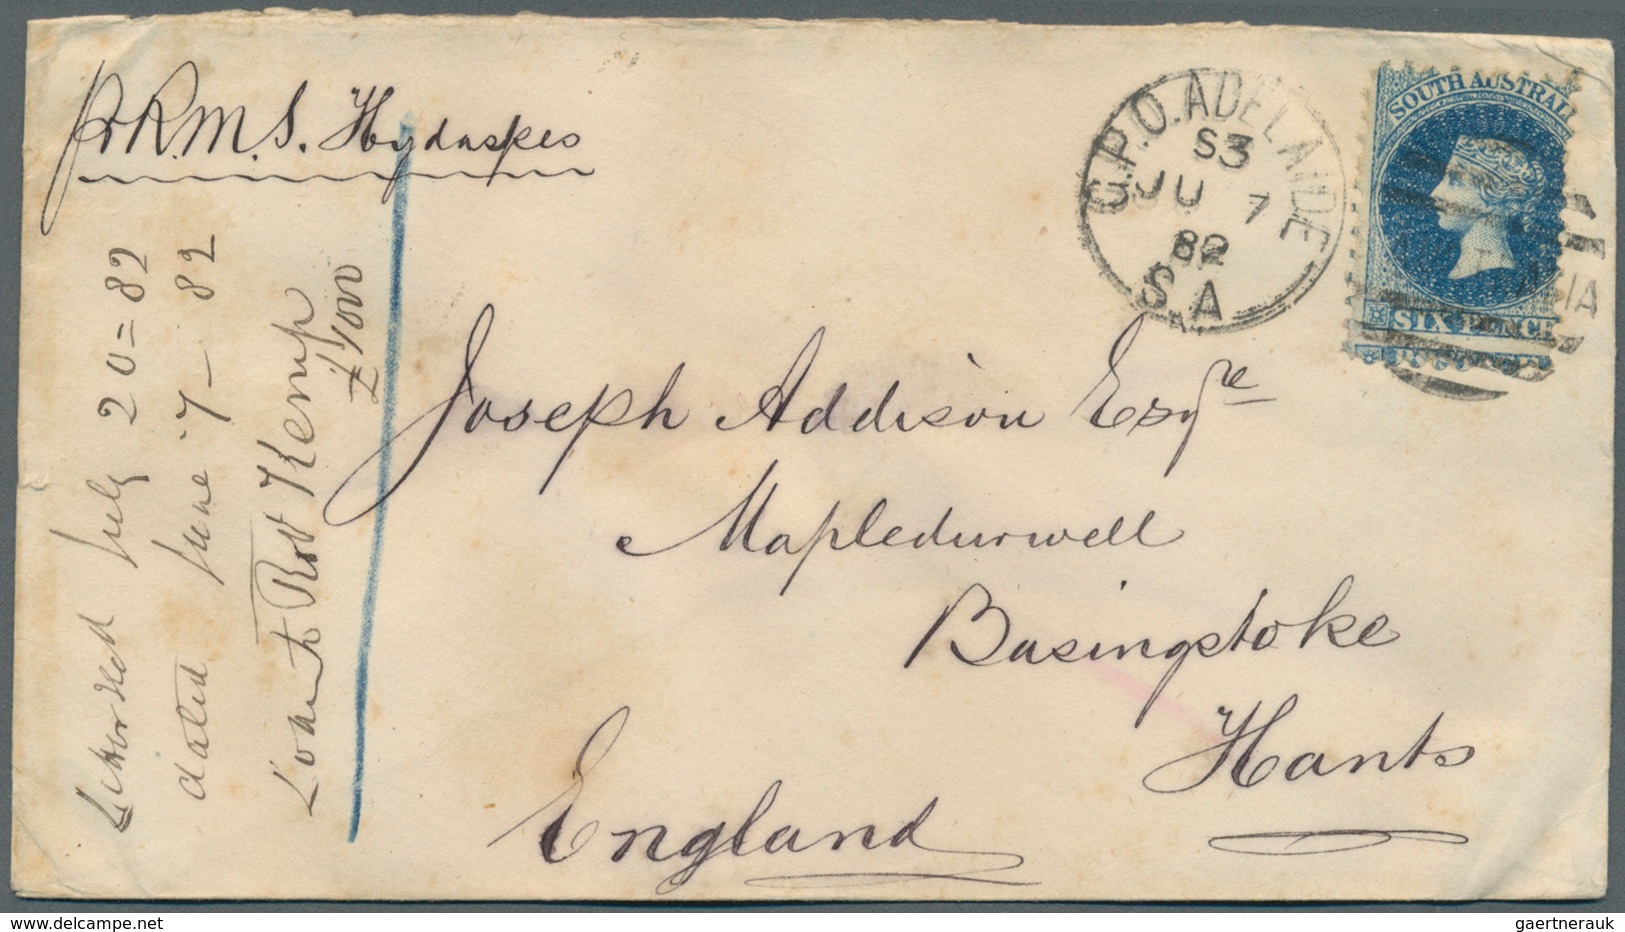 pr R.M.S. Hydaspes
G.P.O. ADELAIDE
S3
JU 7
82
S.A
SOUTH AUSTRALIA
SIX PENCE
IA
Joseph Addison Esqre
Mapledurwell
Basingstoke
Hants
England
July 20=82
dated June 7-82
Loan to Robt Kemp
£1000
gaertnerauk